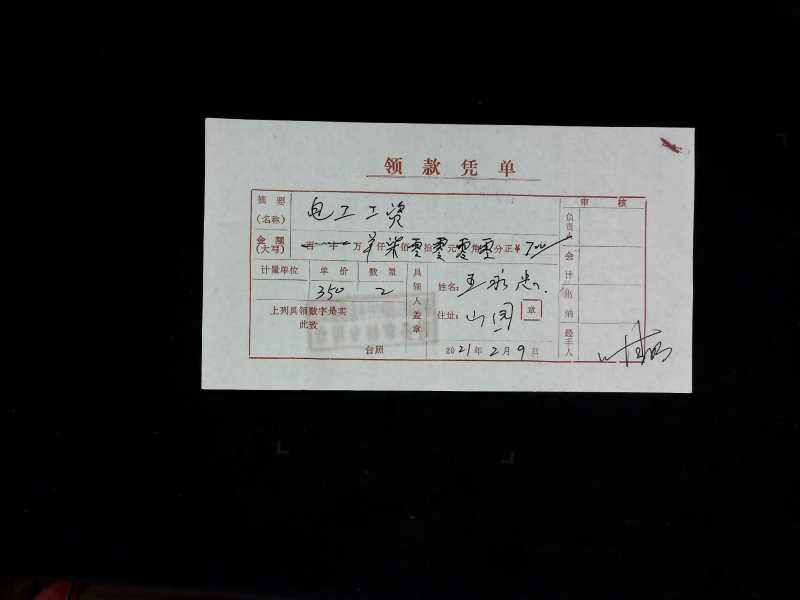 领款凭单
摘要
(名称)
电工工资
金额
(大写)
百十万仟柒佰零拾零元零角零分正¥700
计量单位 单价 数量
350 2
上列具领数字是实
此致
台照
具领人盖章
姓名:王永忠
住址:山图
章
2021年2月9日
审核
负责人
会计
出纳
经手人